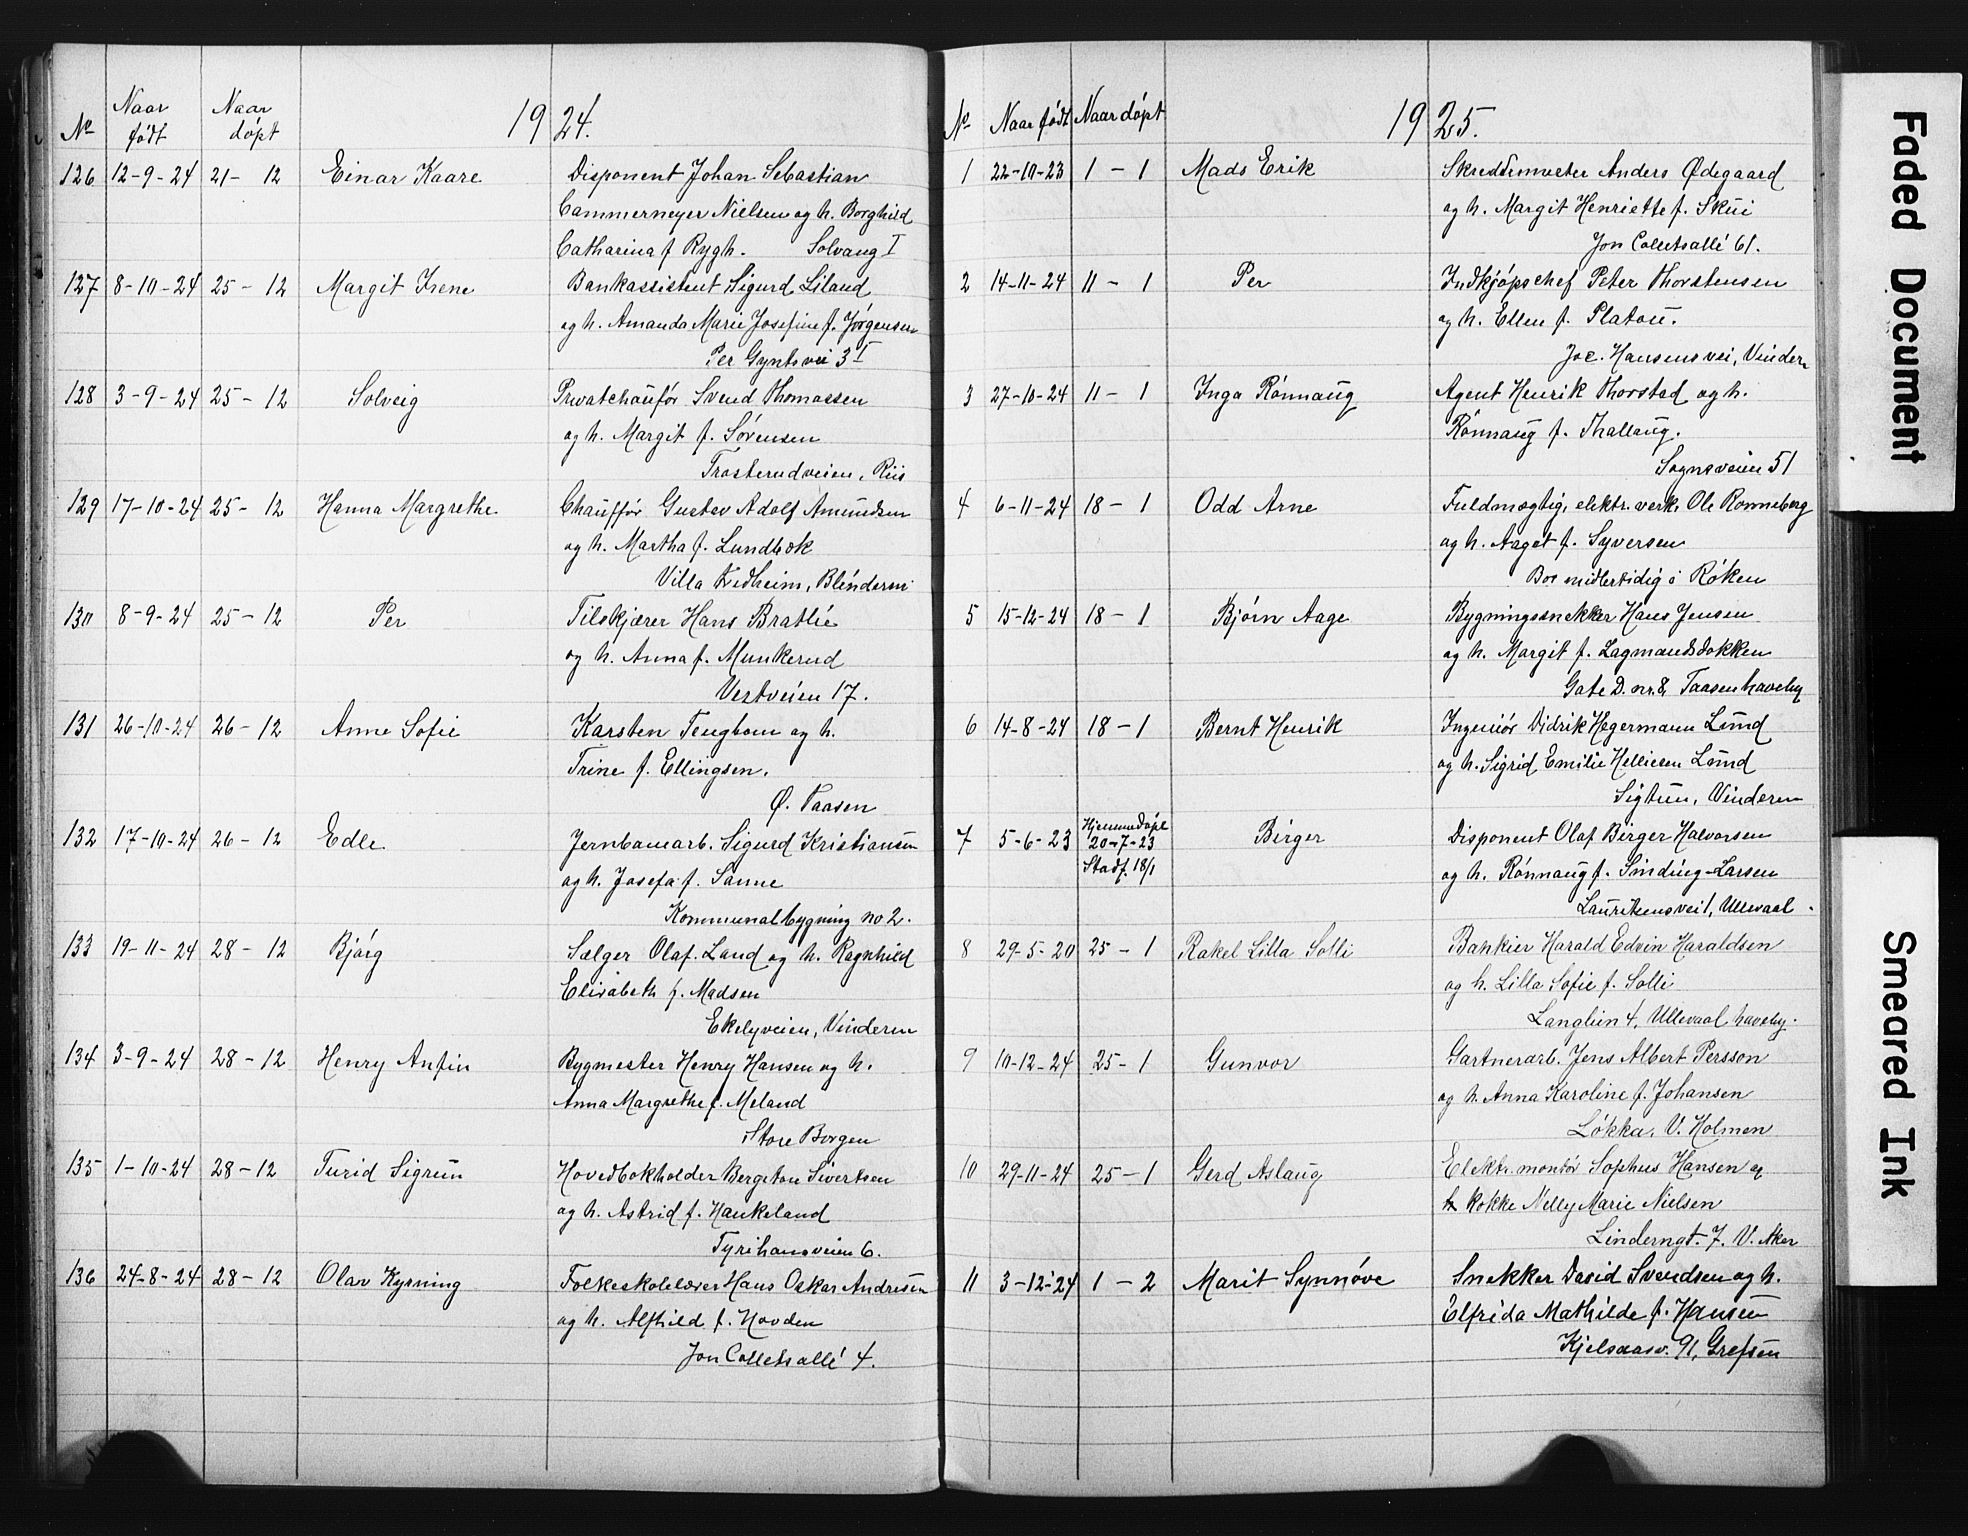 No Naar født Naar døpt 1924.
126 12-9-24 21-12 Einar Kaare Disponent Johan Sebastian
Cammermeyer Nielsen og h. Borghild
Catharina f. Rygh. Solvang I
127 8-10-24 25-12 Margit Irene Bankassistent Sigurd Liland
og h. Amanda Marie Josefine f. Jørgensen
Per Gyntsvei 3 I
128 3-9-24 25-12 Solveig Privatchaufør Svend Thomassen
og h. Margit f. Sørensen
Trosterudveien, Riis
129 17-10-24 25-12 Hanna Margrethe Chauffør Gustav Adolf Amundsen
og h. Martha f. Lundbøk
Villa Fredheim, Blindern
130 8-9-24 25-12 Per Tilskjærer Hans Bratlie
og h. Anna f. Munkerud
Vestveien 17.
131 26-10-24 26-12 Anne Sofie Karsten Tengbom og h.
Trine f. Ellingsen.
Ø. Taasen
132 17-10-24 26-12 Edle Jernbanearb. Sigurd Kristiansen
og h. Josefa f. Sanne
Kommunalbygning no 2.
133 19-11-24 28-12 Bjørg Sælger Olaf Land og h. Ragnhild
Elisabeth f. Madsen
Ekelyveien, Vinderen
134 3-9-24 28-12 Henry Anfin Bygmester Henry Hansen og h.
Anna Margrethe f. Meland
Store Borgen
135 1-10-24 28-12 Turid Sigrun Hovedbokholder Bergiton Sivertsen
og h. Astrid f. Haukeland
Tyrihansveien 6.
136 24-8-24 28-12 Olav Kyrning Folkeskolelærer Hans Oskar Andresen
og h. Alfhild f. Hovden
Jon Colletsallé 4.
No Naar født Naar døpt 1925.
1 22-10-23 1-1 Mads Erik Skreddermester Anders Ødegaard
og h. Margit Henriette f. Skui
Jon Colletsallé 61.
2 14-11-24 11-1 Per Indkjøpschef Peter Thorstensen
og h. Ellen f. Platou.
Joc. Hansensvei, Vinderen
3 27-10-24 11-1 Inga Rønnaug Agent Henrik Thorstad og h.
Rønnaug f. Thallaug.
Sognsveien 51
4 6-11-24 18-1 Odd Arne Fuldmægtig, elektr. verk. Ole Ronneberg
og h. Aagot f. Syversen
Bor midlertidig i Røken
5 15-12-24 18-1 Bjørn Aage Bygningssnekker Hans Jensen
og h. Margit f. Lagmandsdokken
Gate D. nr. 8, Taasen haveby
6 14-8-24 18-1 Bernt Henrik Ingeniør Didrik Hegermann Lund
og h. Sigrid Emilie Helliesen Lund
Sigtun, Vinderen
7 5-6-23 Hjemmedøpt 20-7-23 Stadf. 18/1 Birger Disponent Olaf Birger Halvorsen
og h. Rønnaug f. Sinding-Larsen
Lauritzensvei 1, Ullevaal.
8 29-5-20 25-1 Rakel Lilla Solli Bankier Harald Edvin Haraldsen
og h. Lilla Sofie f. Solli
Langlien 4, Ullevaal haveby.
9 10-12-24 25-1 Gunvor Gartnerarb. Jens Albert Persson
og h. Anna Karoline f. Johansen
Løkka, V. Holmen
10 29-11-24 25-1 Gerd Aslaug Elektr. montør Sophus Hansen og
kokke Nelly Marie Nielsen
Linderngt. 7. V. Aker
11 3-12-24 1-2 Marit Synnøve Snekker David Svendsen og h.
Elfrida Mathilde f. Hansen
Kjelsaasv. 91, Grefsen
Faded Document
Smeared Ink